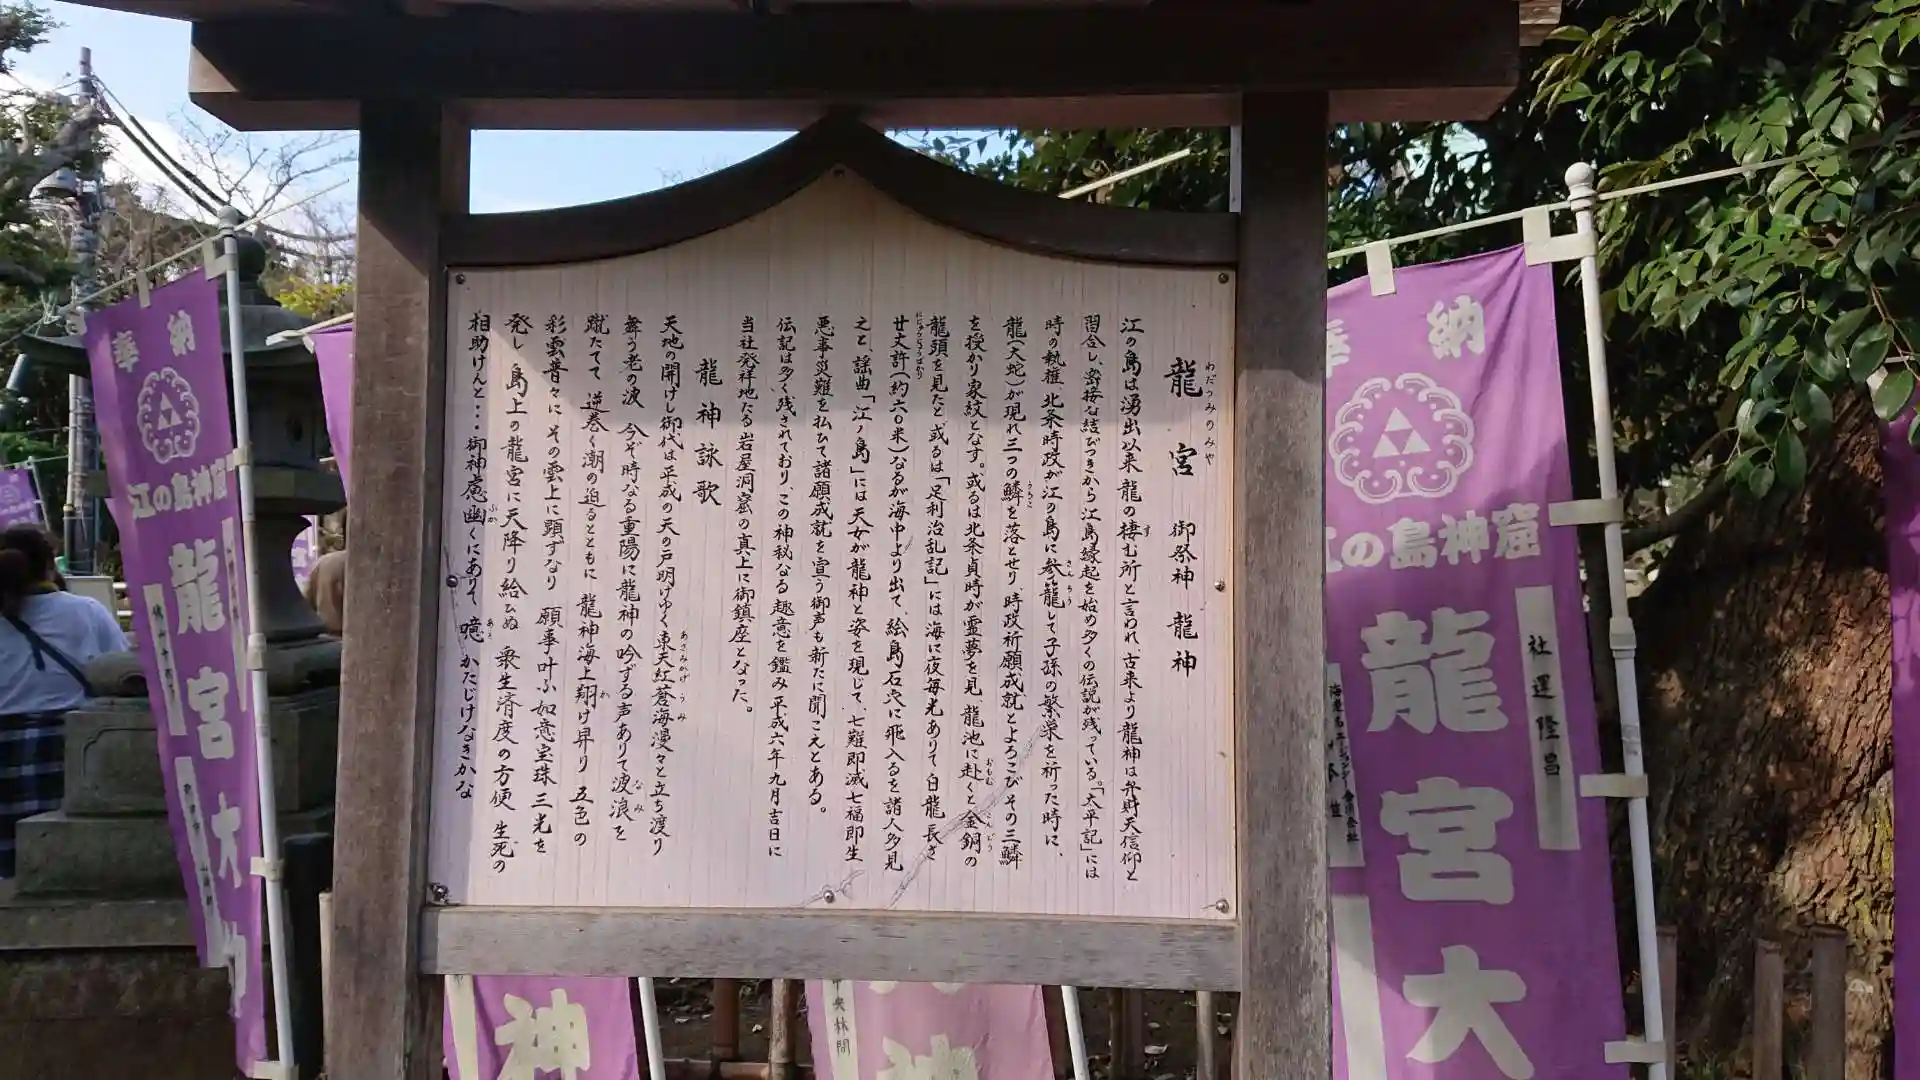 龍宮 御祭神 龍神
わだつみのみや
江の島は湧出以来龍の棲む所と言われ、古来より龍神は弁財天信仰と
す
習合し、密接な結びつきから江島縁起を始め多くの伝説が残っている。「太平記」には
時の執権、北条時政が江の島に参籠して子孫の繁栄を祈った時に、
さんろう
龍(大蛇)が現れ三つの鱗を落とせり、時政祈願成就とよろこびその三鱗
うろこ
を授かり家紋となす。或るは北条貞時が霊夢を見、龍池に赴くと金銅の
おもむ
こんどう
龍頭を見たと、或るは「足利治乱記」には海に夜毎光ありて白龍長さ
廿丈許(約六〇米)なるが海中より出て、絵島石穴に飛入るを諸人多見
にじゅうじょうばかり
之と、謡曲「江ノ島」には天女が龍神と姿を現じて、七難即滅七福即生
悪事災難を払ひて諸願成就を宣う御声も新たに聞こえとある。
伝記は多く残されており、この神秘なる趣意を鑑み平成六年九月吉日に
当社発祥地たる岩屋洞窟の真上に御鎮座となった。
龍神詠歌
天地の開けし御代は平成の天の戸明けゆく東天紅蒼海漫々と立ち渡り
あさみかげ
うみ
舞う老の波 今ぞ時なる重陽に龍神の吟ずる声ありて波浪を
なみ
蹴たてて 逆巻く潮の迫るとともに 龍神海上翔け昇り 五色の
か
彩雲普々に その雲上に顕ずなり 願事叶ふ如意宝珠三光を
発し 島上の龍宮に天降り給ひぬ 衆生済度の方便 生死の
相助けんと・・・御神慮幽くにありて 噫 かたじけなきかな
ふか
ああ
奉納
江の島神窟
龍宮大神
納
江の島神窟
龍宮大
社運隆昌
神
中央林間